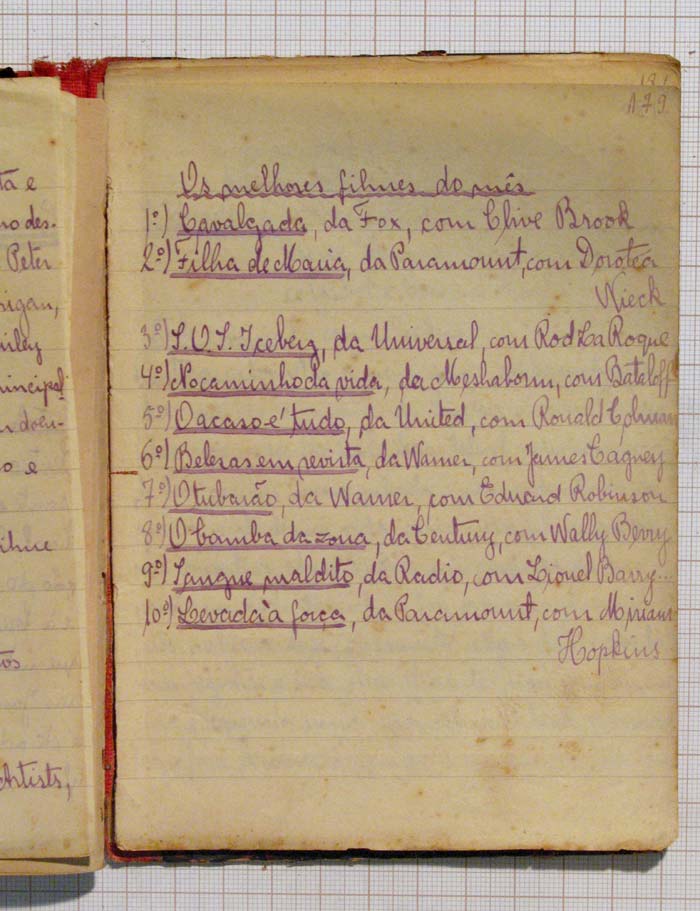 tá e
no des-
Peter
sigan,
irley
rincipal
doen-
o e
ilme
tos
Artists,
181
179
Os melhores filmes do mês
1º) Cavalgada, da Fox, com Clive Brook
2º) Filha de Maria, da Paramount, com Dorotea
Wieck
3º) S.O.S. Iceberg, da Universal, com Rod La Roque
4º) No caminho da vida, da Meshaborm, com Bataloff
5º) O acaso é tudo, da United, com Ronald Colman
6º) Belezas em revista, da Warner, com James Cagney
7º) O tubarão, da Warner, com Eduard Robinson
8º) O bamba da zona, da Century, com Wally Berry
9º) Sangue maldito, da Radio, com Lionel Barry...
10º) Levada à força, da Paramount, com Miriam
Hopkins